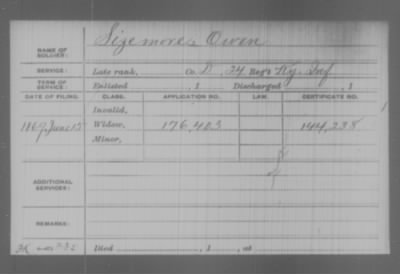 NAME OF SOLDIER: Sizemore, Owen
SERVICE: Late rank, Co. D, 24 Reg't Ky. Inf.
TERM OF SERVICE: Enlisted , 1 Discharged , 1
DATE OF FILING. CLASS. APPLICATION NO. LAW. CERTIFICATE NO.
Invalid,
1869, June 15 Widow, 176,403 144,238
Minor,
ADDITIONAL SERVICES:
REMARKS:
Died , 1 , at